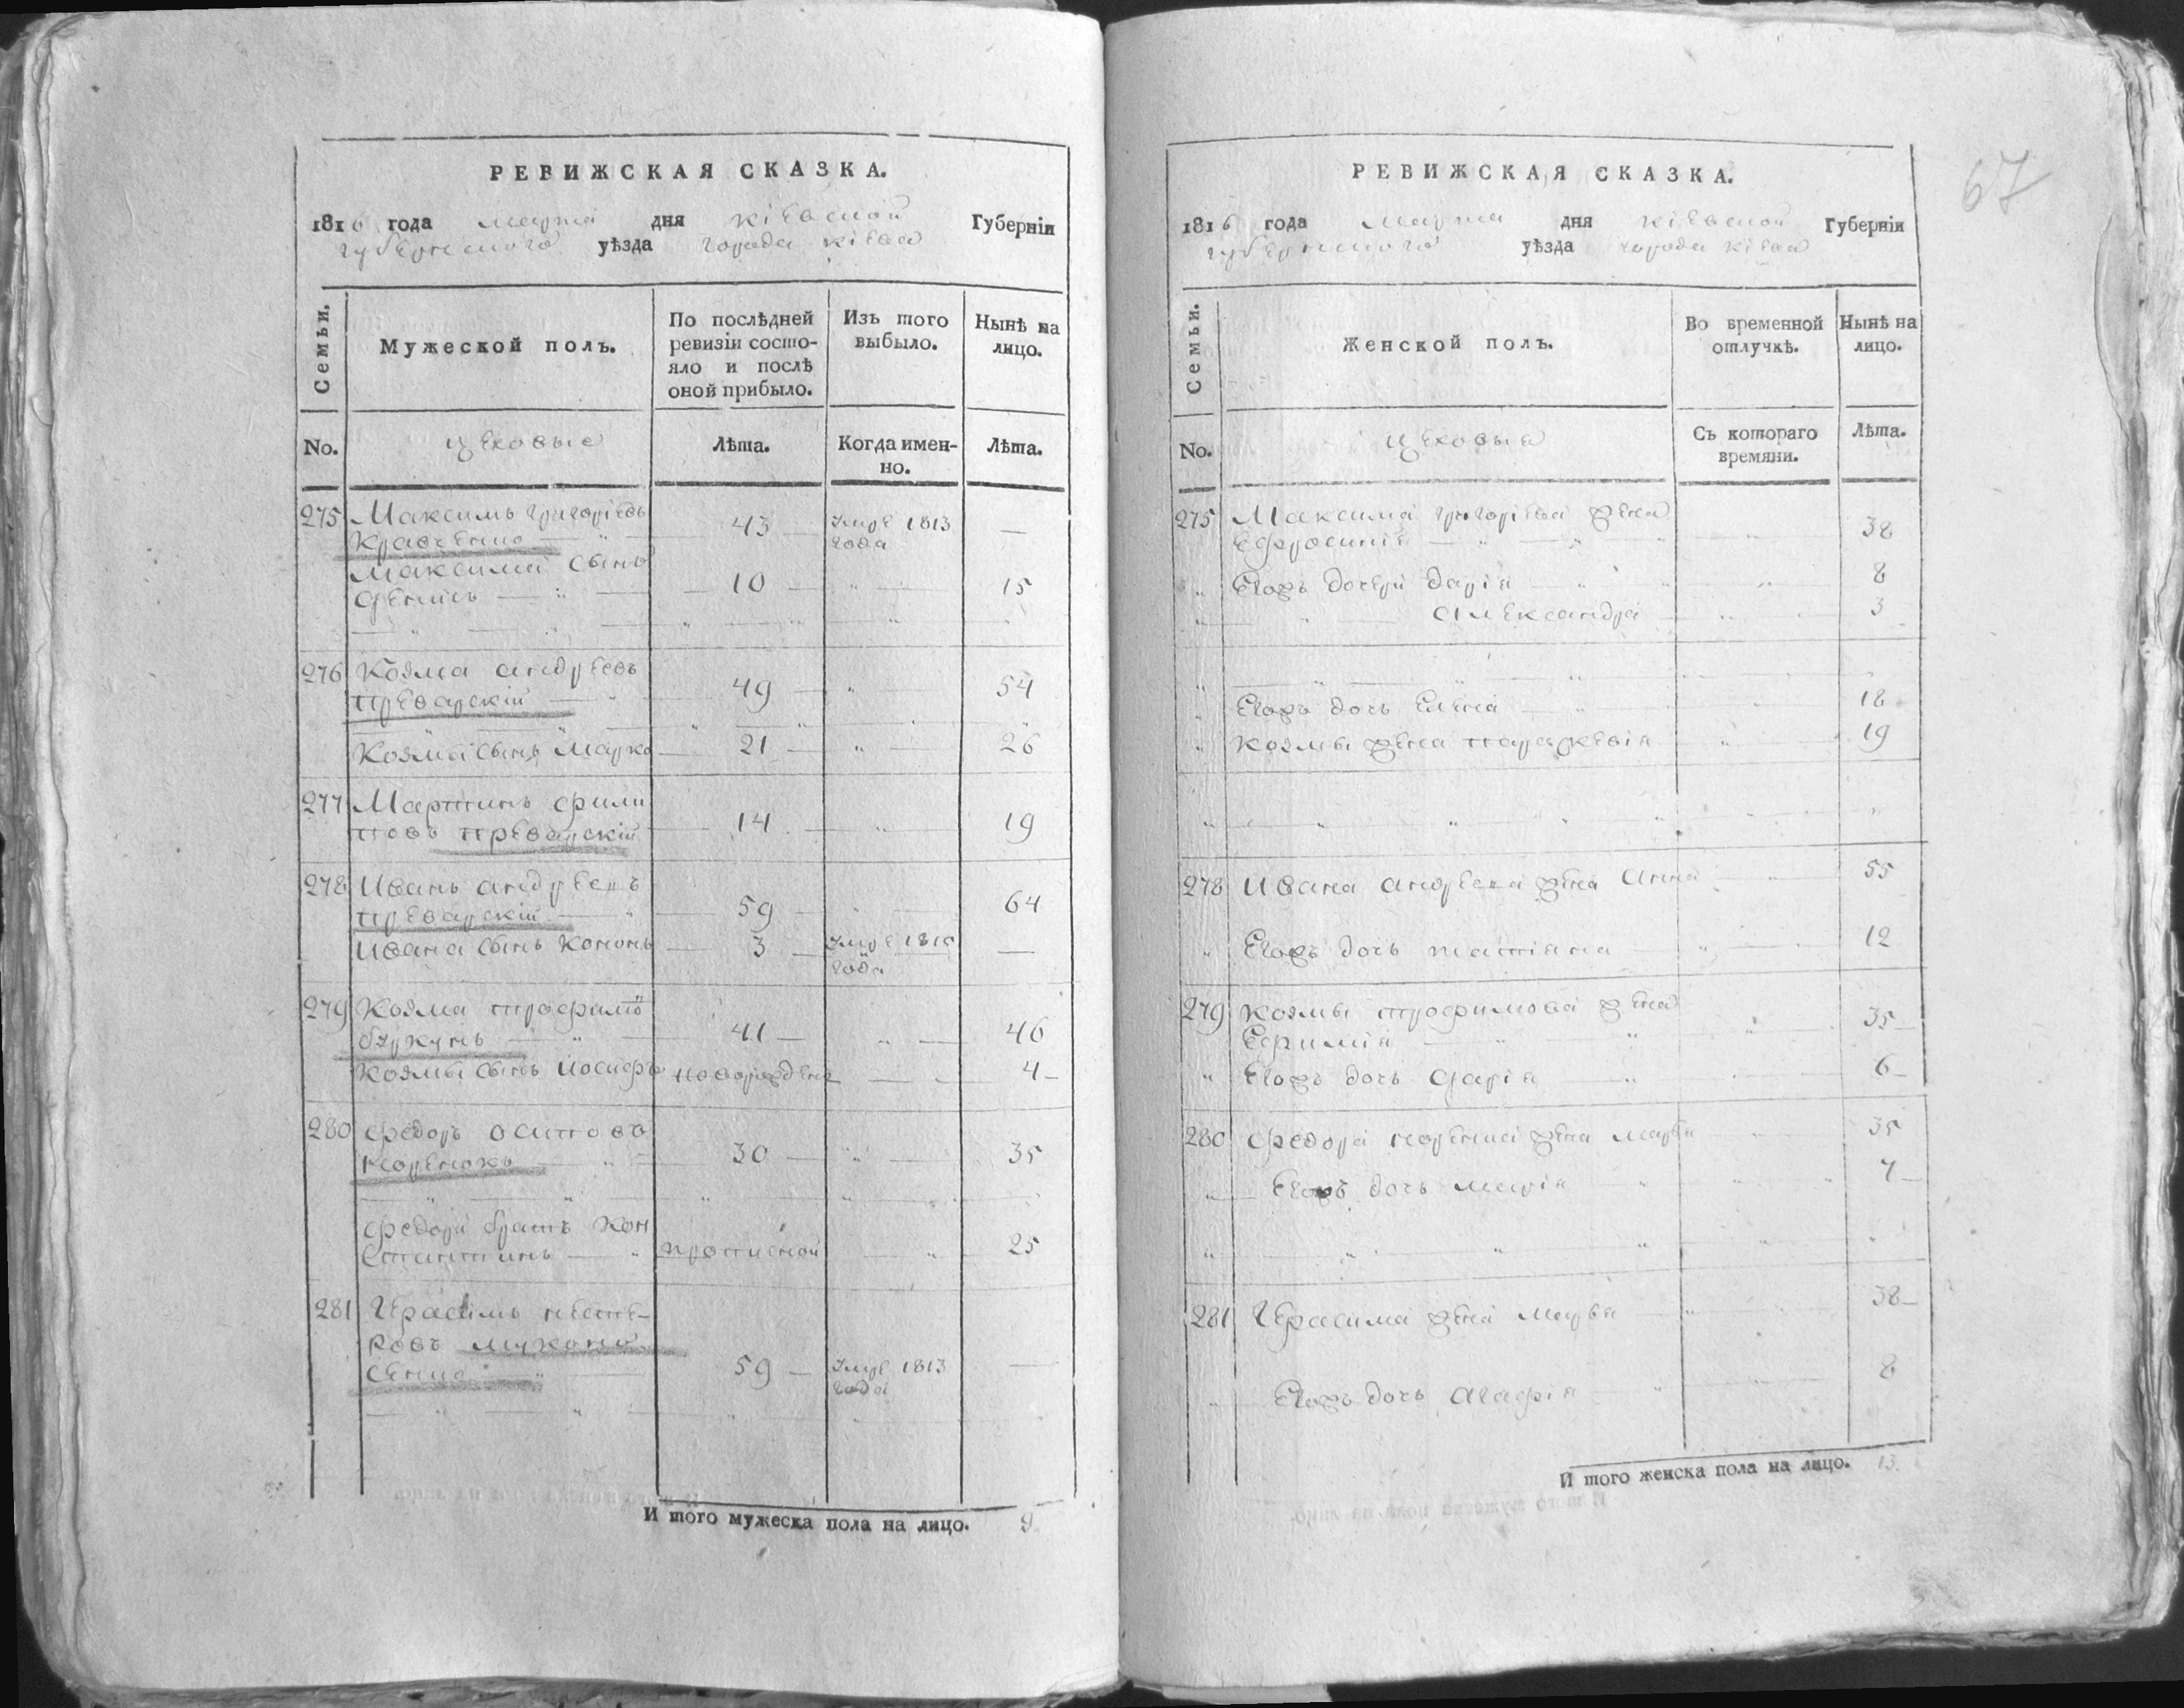 РЕВИЖСКАЯ СКАЗКА.
1816 года марта дня кіевской Губерніи
губернского уѣзда города кіева
Семьи.
Мужеской полъ.
По послѣдней
ревизіи состо-
яло и послѣ
оной прибыло.
Изъ того
выбыло.
Нынѣ на
лицо.
No.
цеховые
Лѣта.
Когда имен-
но.
Лѣта.
275 Максимъ григоріевъ
Кравченко 43 умре 1813 года —
Максима сынъ
Денисъ 10 15
276 Козма андреевъ
преварскій 49 54
Козма сынъ Марко 21 26
277 Мартинъ фили
повъ преварскій 14 19
278 Иванъ андреевъ
преварскій 59 64
Ивана сынъ Кононъ 3 умре 1815 года —
279 Козма трофимо
41 46
Козмы сынъ Иосифъ новорожденъ 4
280 федоръ осиповъ
30 35
федора братъ Кон
стантинъ прописной 25
281 Герасимъ несте-
ровъ
59 умре 1813 года —
И того мужеска пола на лицо. 9
67
РЕВИЖСКАЯ СКАЗКА.
1816 года марта дня кіевской Губерніи
губернского уѣзда города кіева
Семьи.
Женской полъ.
Во временной
отлучкѣ.
Нынѣ на
лицо.
No.
цеховые
Съ котораго
времяни.
Лѣта.
275 Максима григоріева жена
Ефросинія 38
Егожъ дочери Дарія 8
Александра 3
Егожъ дочь Елена 18
Козмы жена параскевія 19
278 Ивана андреева жена Анна 55
Егожъ дочь татіана 12
279 Козмы трофимова жена
Ефимія 35
Егожъ дочь Дарія 6
280 федора жена марфа 35
Егожъ дочь марія 7
281 Герасима жена марфа 38
Егожъ дочь Агафія 8
И того женска пола на лицо. 13.